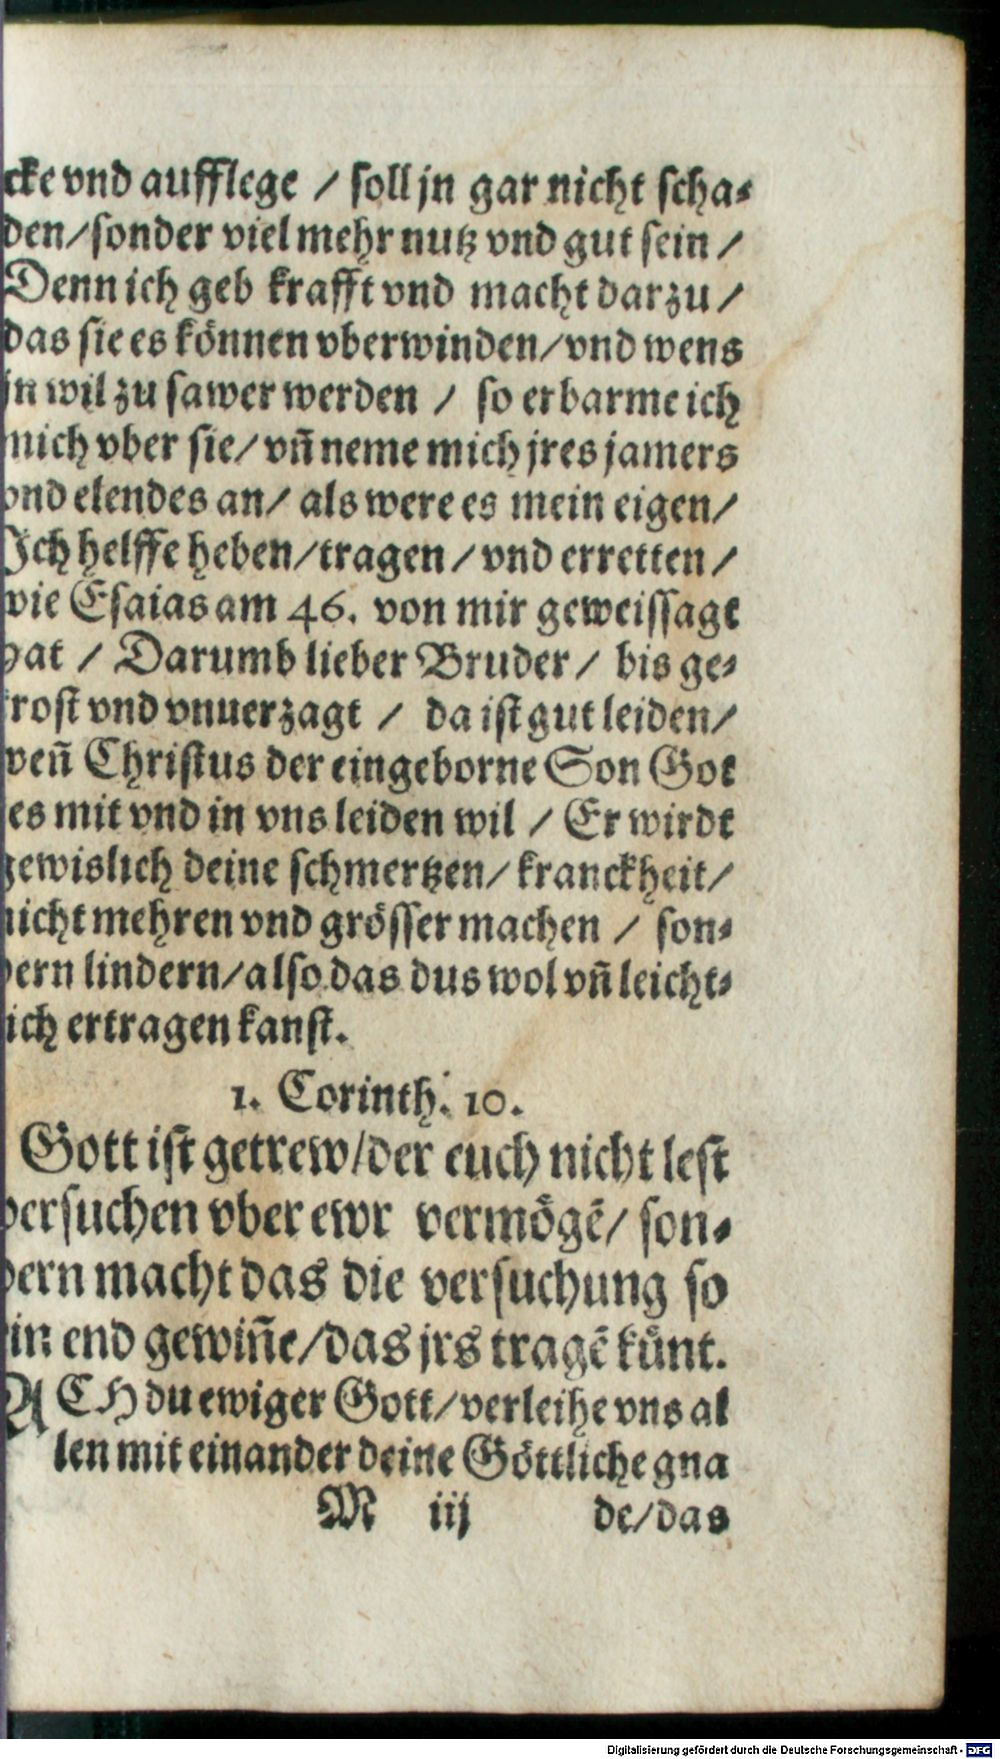 cke vnd aufflege / soll jn gar nicht scha-
den/sonder viel mehr nutz vnd gut sein /
Denn ich geb krafft vnd macht darzu /
das sie es können vberwinden/vnd wens
jn wil zu sawer werden / so erbarme ich
mich vber sie/ vñ neme mich jres jamers
vnd elendes an/ als were es mein eigen/
Ich helffe heben/tragen / vnd erretten /
wie Esaias am 46. von mir geweissagt
hat / Darumb lieber Bruder / bis ge-
trost vnd vnuerzagt / da ist gut leiden/
weñ Christus der eingeborne Son Got
es mit vnd in vns leiden wil / Er wirdt
gewislich deine schmertzen/ kranckheit/
nicht mehren vnd grösser machen / son-
dern lindern/also das dus wol vñ leicht-
lich ertragen kanst.
1. Corinth. 10.
Gott ist getrew/der euch nicht lest
versuchen vber ewr vermögē/ son-
dern macht das die versuchung so
ein end gewiñe/das jrs tragē künt.
ACH du ewiger Gott/verleihe vns al
len mit einander deine Göttliche gna
M iij de/das
Digitalisierung gefördert durch die Deutsche Forschungsgemeinschaft - DFG